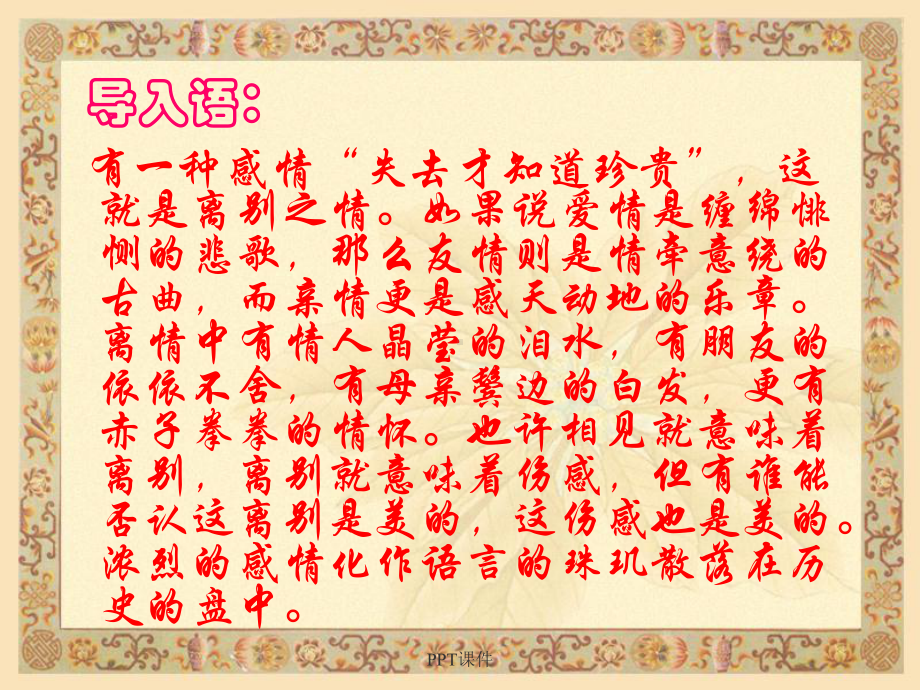 导入语：
有一种感情“失去才知道珍贵”，这
就是离别之情。如果说爱情是缠绵悱
恻的悲歌，那么友情则是情牵意绕的
古曲，而亲情更是感天动地的乐章。
离情中有情人晶莹的泪水，有朋友的
依依不舍，有母亲鬓边的白发，更有
赤子拳拳的情怀。也许相见就意味着
离别，离别就意味着伤感，但有谁能
否认这离别是美的，这伤感也是美的。
浓烈的感情化作语言的珠玑散落在历
史的盘中。
PPT课件